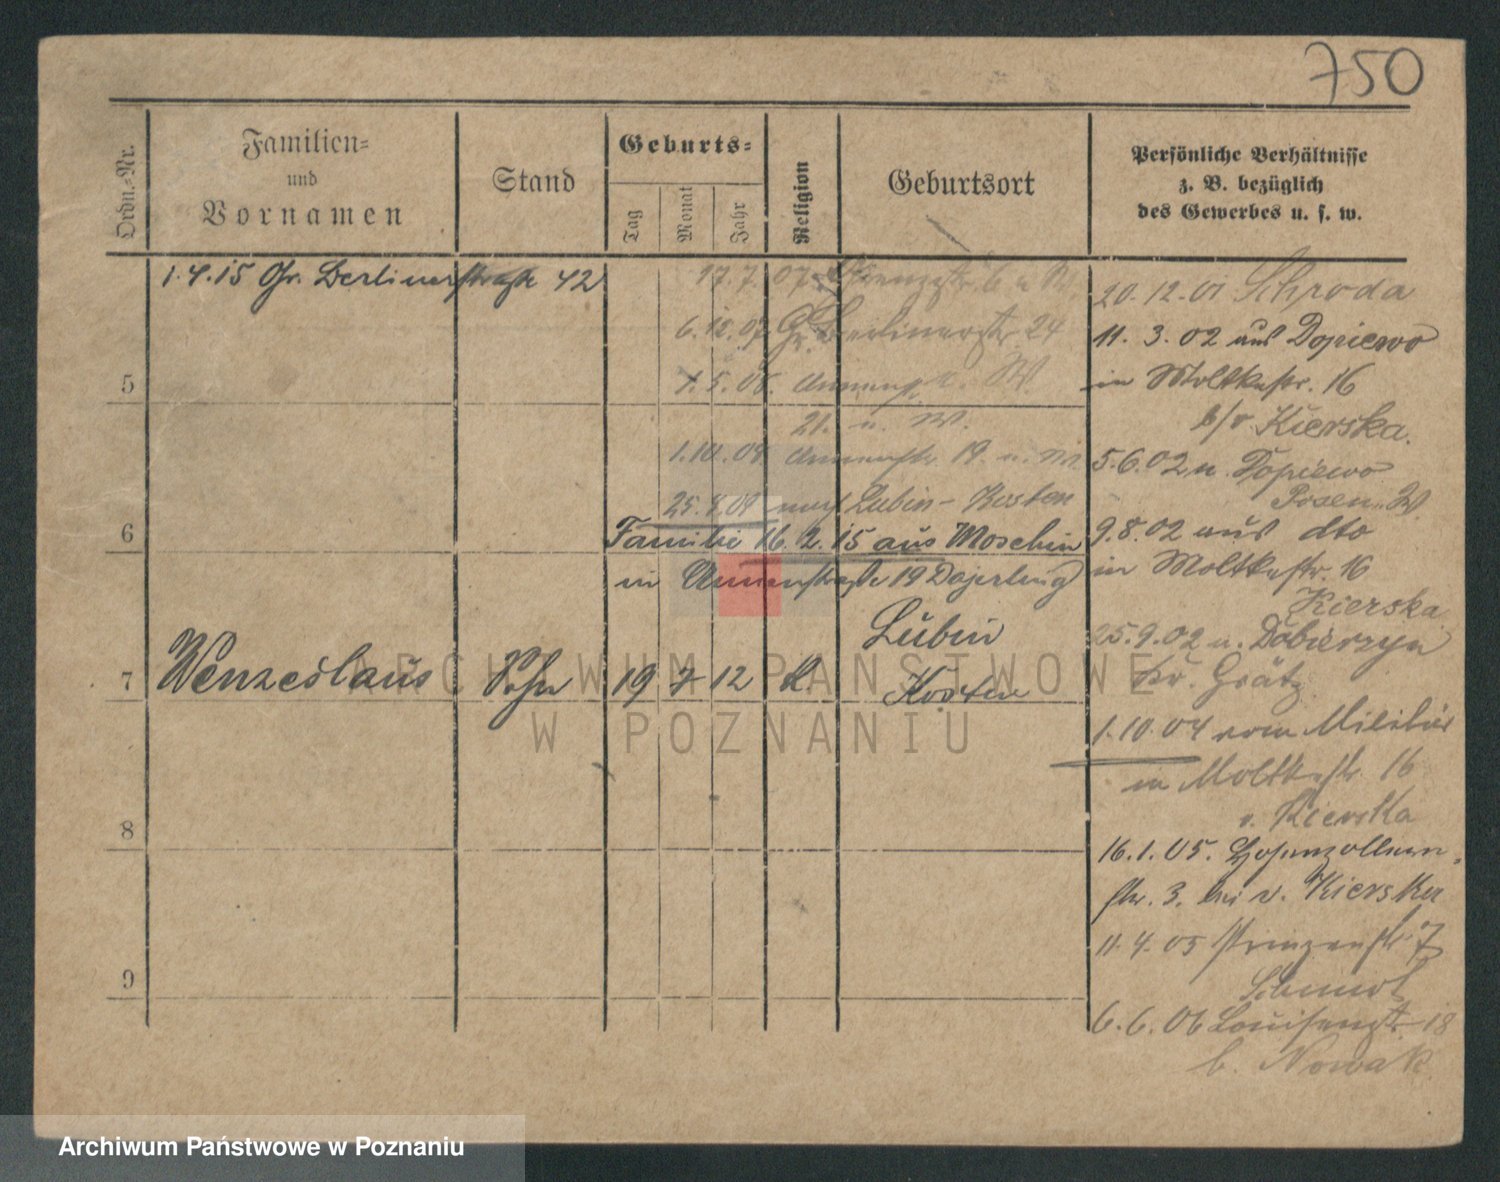 750
Ordn.-Nr.
Familien-
und
Vornamen
Stand
Geburts-
Tag
Monat
Jahr
Religion
Geburtsort
Persönliche Verhältnisse
z. B. bezüglich
des Gewerbes u. s. w.
1.4.15 Gr. Berlinerstraße 42
17.7.07
6.12.07 Gr. Berlinerstr. 24
5
1.5.08. Annenstr. W.
21. u. W.
1.10.08 Annenstr. 19. u. W.
25.8.09 nach Lubin-Kosten
6
Familie 16.2.15 aus Moschin
in Annenstraße 19
7
Wenzeslaus
Sohn
19 7 12
k.
Lubin
Kosten
8
9
20.12.01 Schroda
11.3.02 aus Dopiewo
in Moltkestr. 16
b/v Kierska.
5.6.02 n. Dopiewo
Posen W
9.8.02 aus dto
in Moltkestr. 16
Kierska
25.9.02 n. Dobieczyn
Kr. Grätz
1.10.04 vom Militär
in Moltkestr. 16
v. Kierska
16.1.05. Hohenzollern-
str. 3. bei v. Kierska
11.4.05 Prinzenstr. 7
6.6.06 Louisenstr. 18
b. Nowak
ARCHIWUM PAŃSTWOWE
W POZNANIU
Archiwum Państwowe w Poznaniu